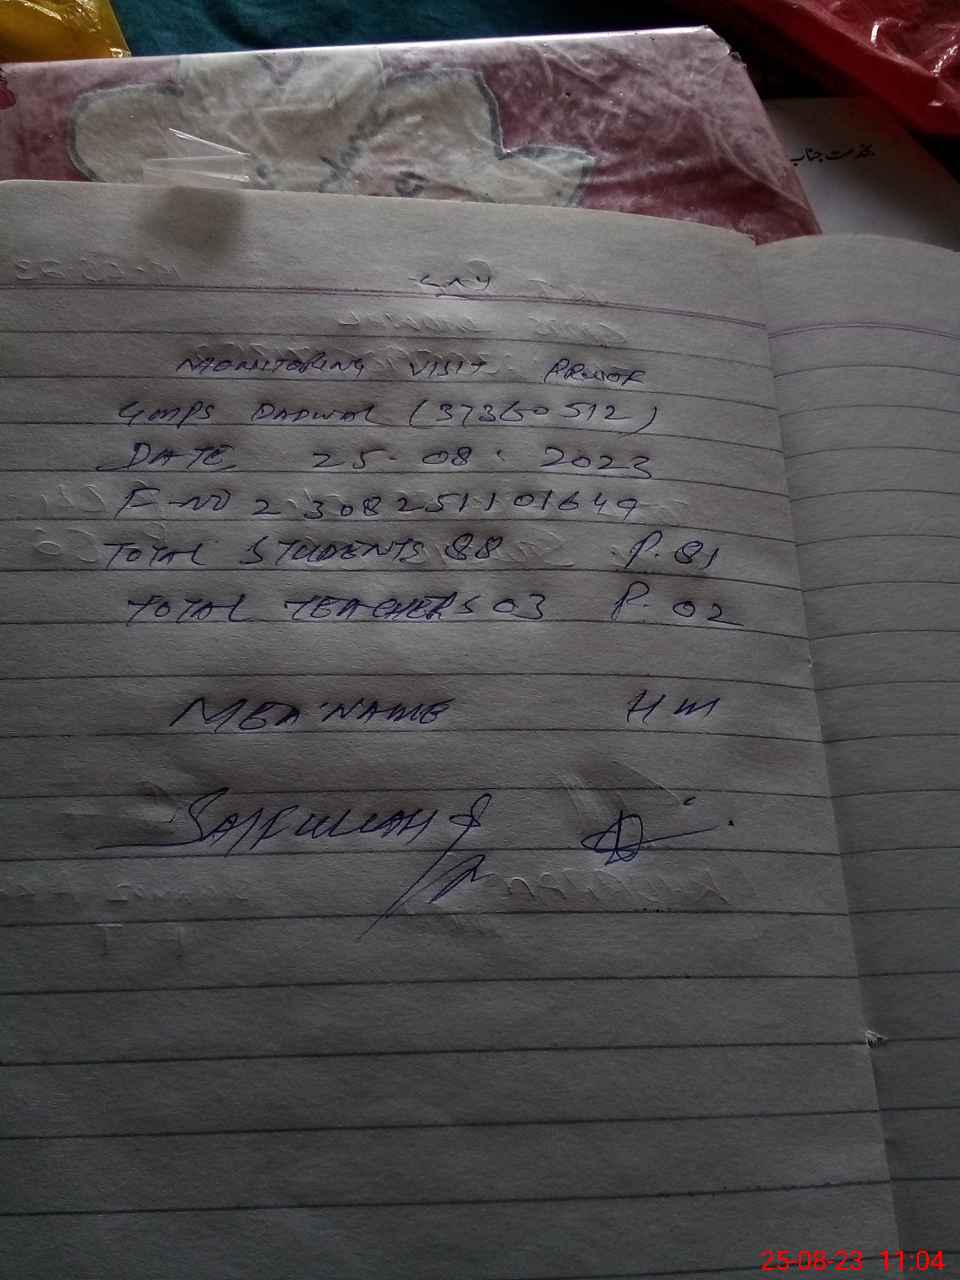 بخدمت جناب
MONITORING VISIT PROOF
GMPS DADWAL (37360512)
DATE 25.08.2023
F-NO 2308251101649
TOTAL STUDENTS 88 P. 81
TOTAL TEACHERS 03 P. 02
MEA NAME HM
SAIFULLAH
25-08-23 11:04